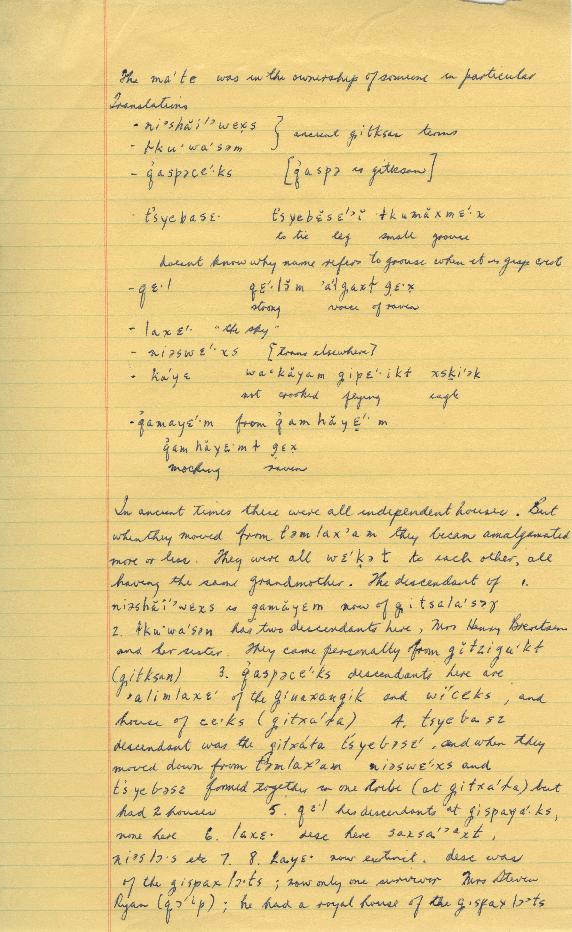 The ma´te was in the ownership of someone in particular
Translations
- niəshăí'ᵓwexs } ancient gitksan terms
- łku·wa´səm
- q̓aspəcɛ´·ks [q̓aspə is gitksan]
t̓syebasɛ· t̓syebĕsɛ´'ĭ łkumăxmɛ´·x
to tie leg small grouse
doesnt know why name refers to grouse when it is gisp crest
- qɛ·l qɛ´·lə̆m 'a´lgaxł gɛ·x
strong voice of raven
- laxɛ´· "the sky"
- niəswɛ´·xs [trans elsewhere]
- k̓a´yɛ wa·kăyam gipɛ´·ikt xsk̲i´ək
not crooked flying eagle
- q̓amayɛ´·m from q̓am hăyɛ´· m
q̓am hăyɛ·mł gɛx
mocking raven
In ancient times these were all independent houses. But
when they moved from t̓əmlax'am they becam amalgamated
more or less. They were all wɛ´k̲ət to each other, all
having the same grandmother. The descendant of 1.
niəshăí'ᵓwɛxs is gamăyɛm now of gitsala´səɣ
2. łku·wa´sən has two descendants here, Mrs Henry
and her sister. They came personally from gĭtzigu´kł
(gitksan) 3. q̓aspəcɛ´·ks descendants here are
'alimlaxɛ´ of the Ginaxangik and wi´cɛks, and
house of cɛ·ks (gitxa´ła) 4. tsyebasɛ
descendant was the gitxáła t̓syebəsɛ´, and when they
moved down from t̓əmlax'am niəswɛ´xs and
t̓syebəsɛ formed together in one tribe (at gitxa´ła) but
had 2 houses 5. qɛ´l his descendants at gispaya´·ks,
none here 6. laxɛ· desc here saxsa´'axt,
niəslɔ·s etc 7. 8. k̓ayɛ· now extinct. desc was
of the gispaxlɔ·ts; now only one survivor Mrs Steven
Ryan (qə´·lp); he had a royal house of the gispaxlɔ·ts